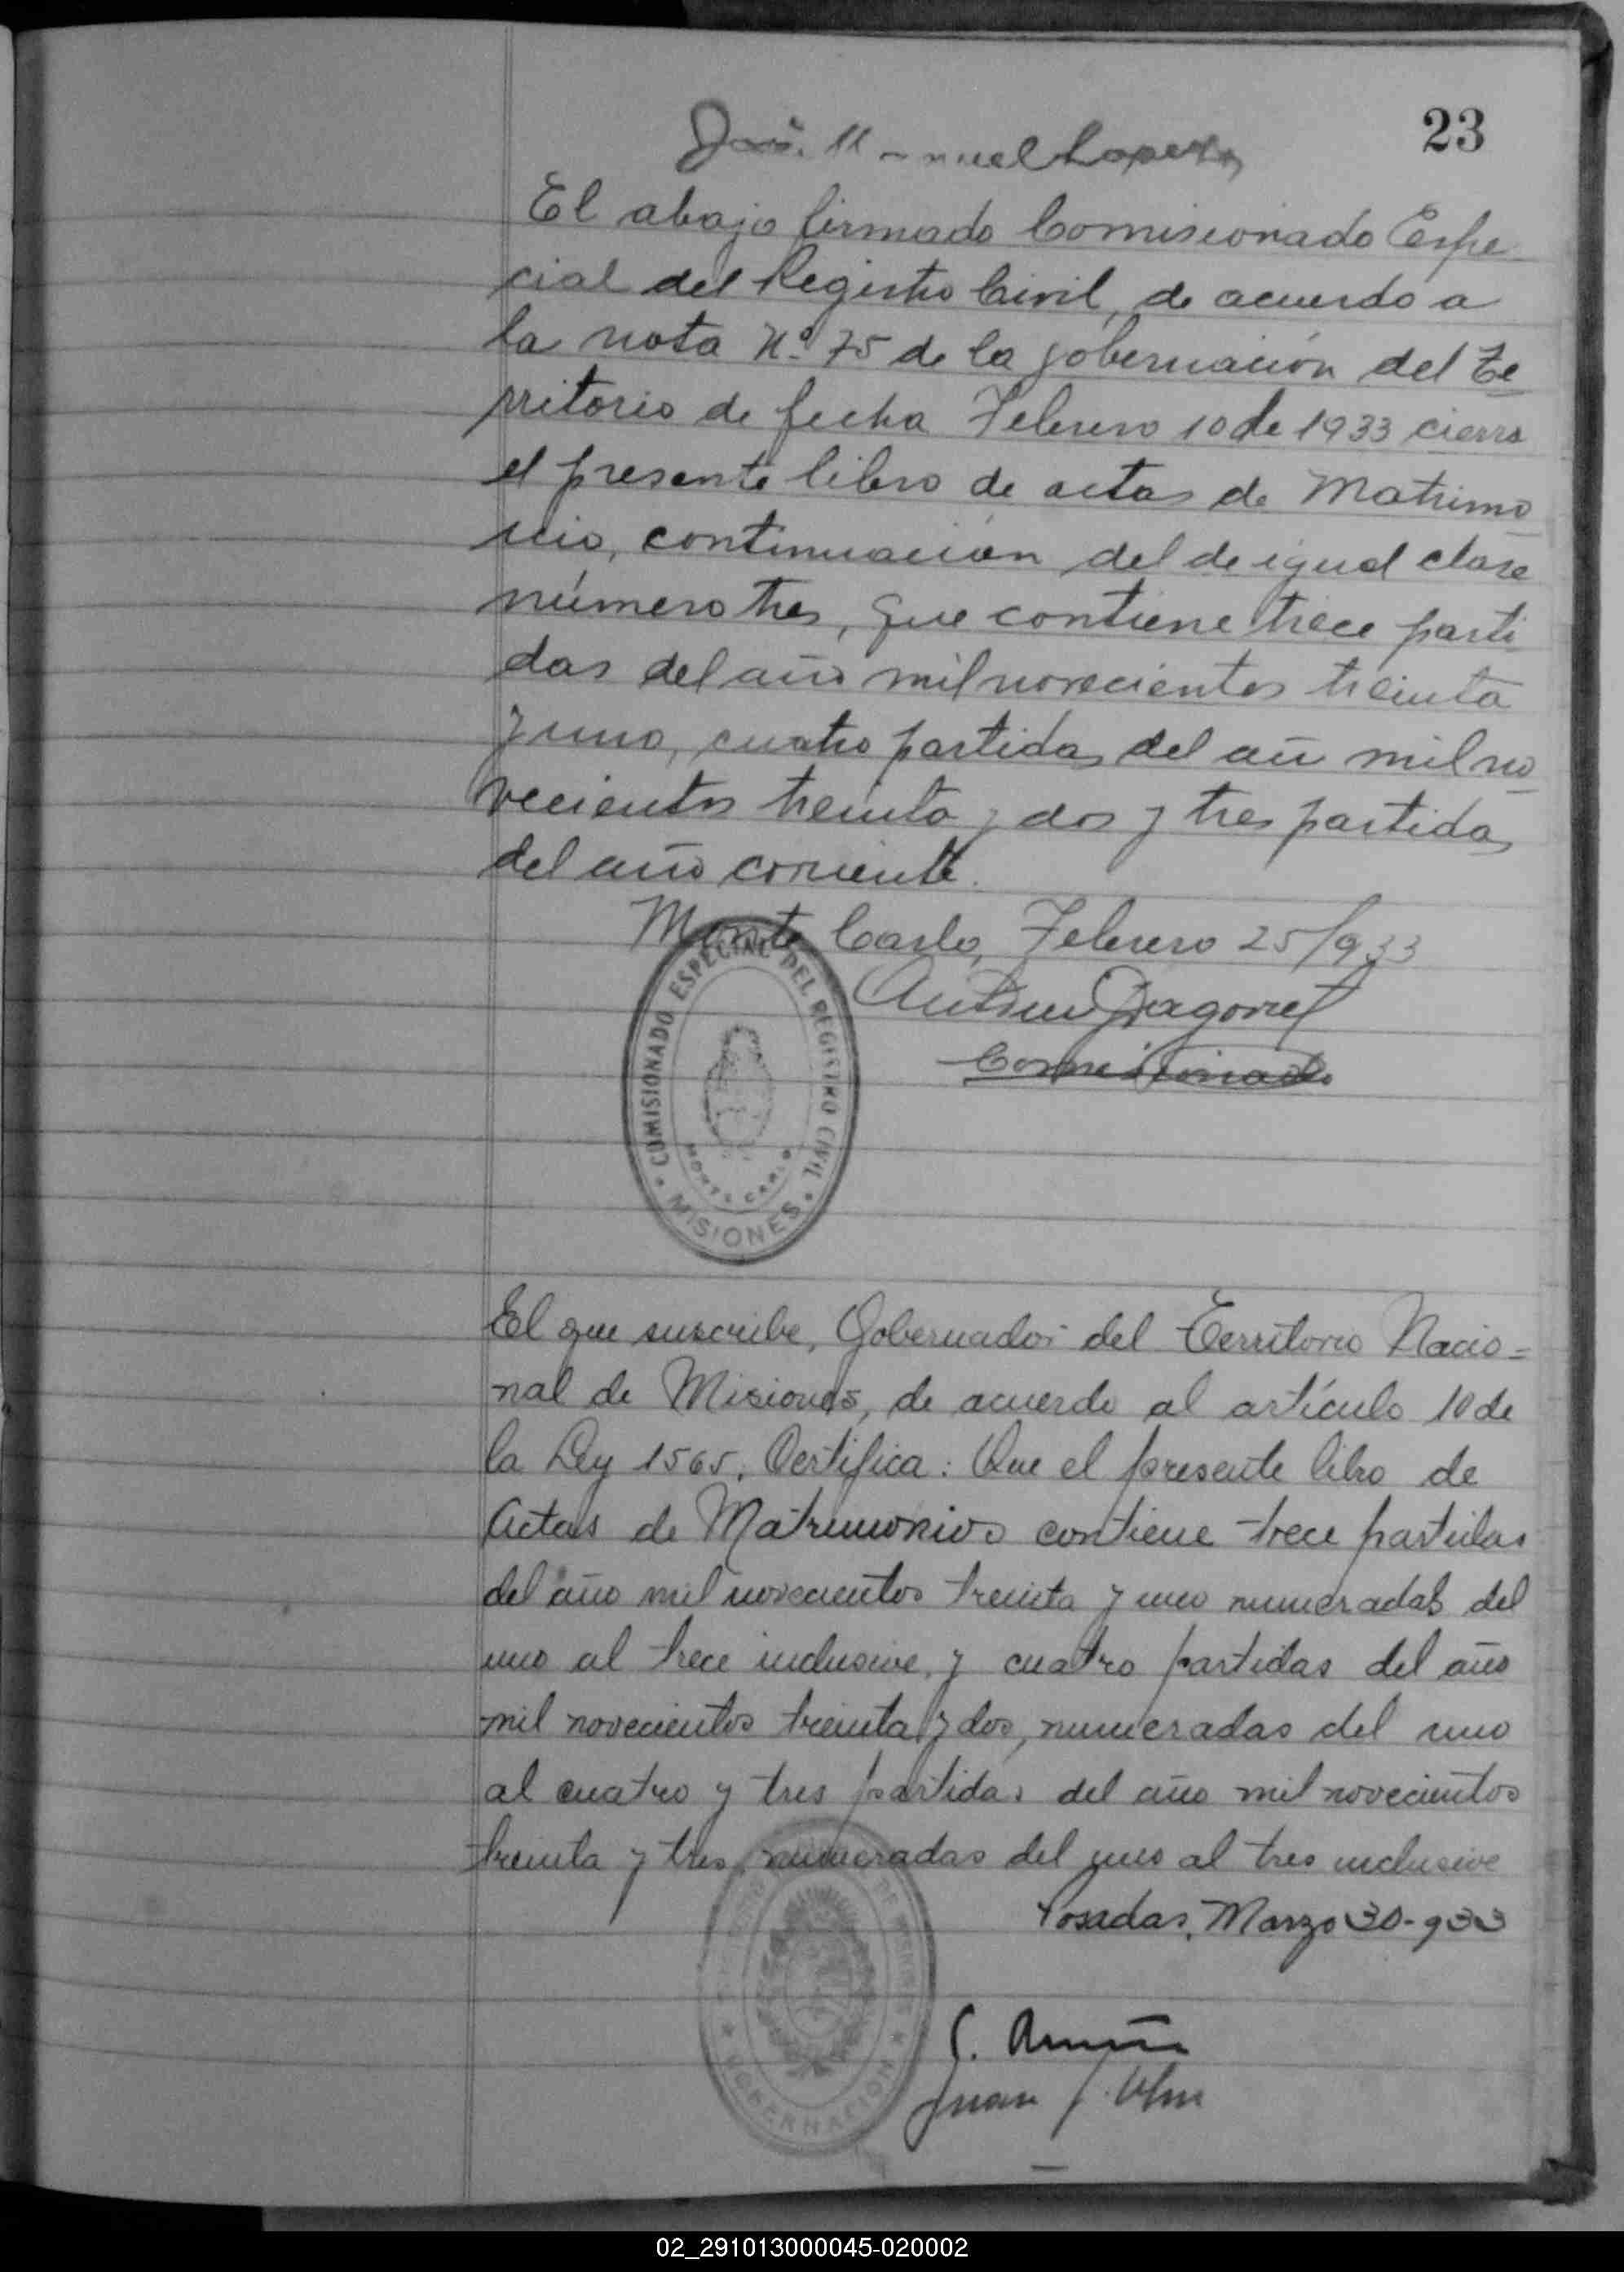 23
José Manuel Lopez
El abajo firmado Comisionado Espe
cial del Registro Civil, de acuerdo a
la nota Nº 75 de la gobernación del Te
rritorio de fecha Febrero 10 de 1933 cierra
el presente libro de actas de Matrimo
nio, continuación del de igual clase
número tres, que contiene trece parti
das del año mil novecientos treinta
y uno, cuatro partidas del año mil no
vecientos treinta y dos y tres partidas
del año corriente.
Monte Carlo, Febrero 25/933
Comisionado
COMISIONADO ESPECIAL DEL REGISTRO CIVIL
MONTE CARLO
MISIONES
El que suscribe, Gobernador del Territorio Nacio=
nal de Misiones, de acuerdo al artículo 10 de
la Ley 1565, Certifica: Que el presente libro de
Actas de Matrimonios contiene trece partidas
del año mil novecientos treinta y uno numeradas del
uno al trece inclusive, y cuatro partidas del año
mil novecientos treinta y dos, numeradas del uno
al cuatro y tres partidas del año mil novecientos
treinta y tres, numeradas del uno al tres inclusive
Posadas, Marzo 30-933
GOBERNACION
Juan J.
02_291013000045-020002